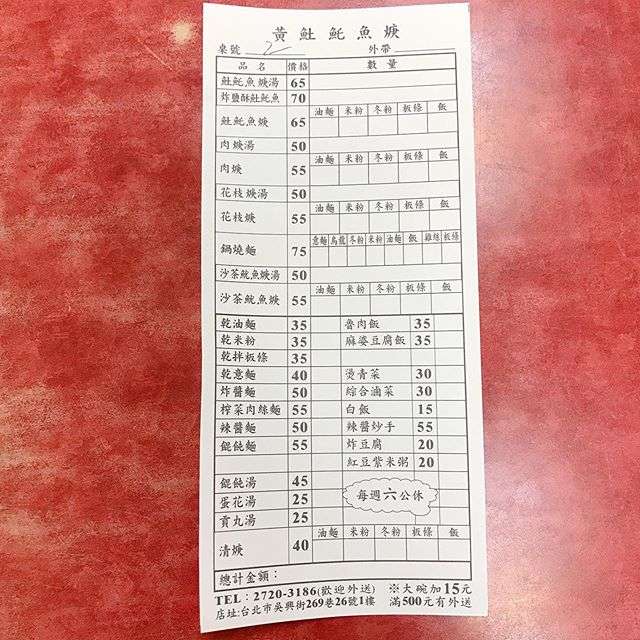 黃𩵚魠魚焿
桌號 2 外帶
品名 價格 數量
𩵚魠魚焿湯 65
炸鹽酥𩵚魠魚 70
油麵 米粉 冬粉 板條 飯
𩵚魠魚焿 65
肉焿湯 50
油麵 米粉 冬粉 板條 飯
肉焿 55
花枝焿湯 50
油麵 米粉 冬粉 板條 飯
花枝焿 55
意麵 烏龍 冬粉 米粉 油麵 飯 雞絲 板條
鍋燒麵 75
沙茶魷魚焿湯 50
油麵 米粉 冬粉 板條 飯
沙茶魷魚焿 55
乾油麵 35 魯肉飯 35
乾米粉 35 麻婆豆腐飯 35
乾拌板條 35
乾意麵 40 燙青菜 30
炸醬麵 50 綜合滷菜 30
榨菜肉絲麵 55 白飯 15
辣醬麵 50 辣醬炒手 55
餛飩麵 55 炸豆腐 20
紅豆紫米粥 20
餛飩湯 45
蛋花湯 25 每週六公休
貢丸湯 25
油麵 米粉 冬粉 板條 飯
清焿 40
總計金額：
TEL：2720-3186(歡迎外送) ※大碗加15元
店址:台北市吳興街269巷26號1樓 滿500元有外送